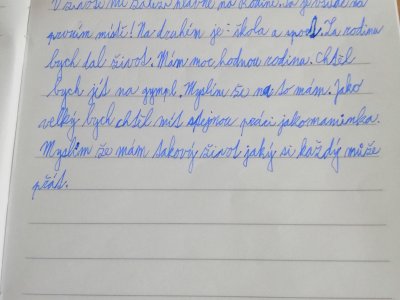 V životě mi záleží hlavně na rodině. Ta je vždy na
prvním místě! Na druhém je škola a sport. Za rodinu
bych dal život. Mám moc hodnou rodinu. Chtěl
bych jít na gympl. Myslím že na to mám. Jako
velký bych chtěl mít stejnou práci jako maminka.
Myslím že mám takový život jaký si každý může
přát.